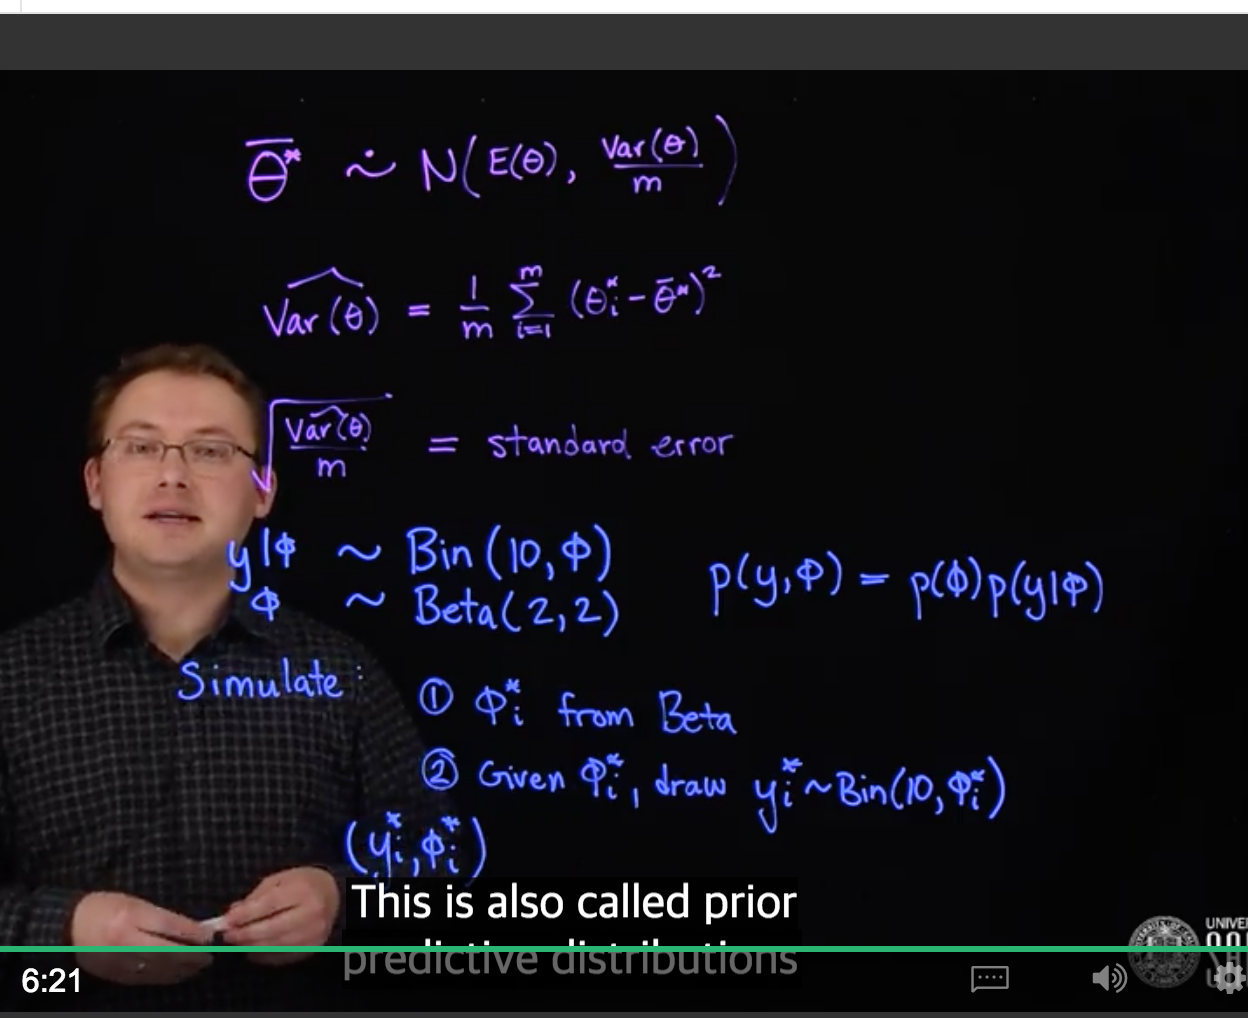 θ̄* ∼̇ N(E(θ), Var(θ)/m)
\widehat{Var(θ)} = 1/m ∑_{i=1}^{m} (θ_i* − θ̄*)²
√(\widehat{Var(θ)}/m) = standard error
y|φ ~ Bin(10, φ)
φ ~ Beta(2,2)
p(y,φ) = p(φ)p(y|φ)
Simulate:
① φ_i* from Beta
② Given φ_i*, draw y_i* ~ Bin(10, φ_i*)
(y_i*, φ_i*)
This is also called prior
predictive distributions
6:21